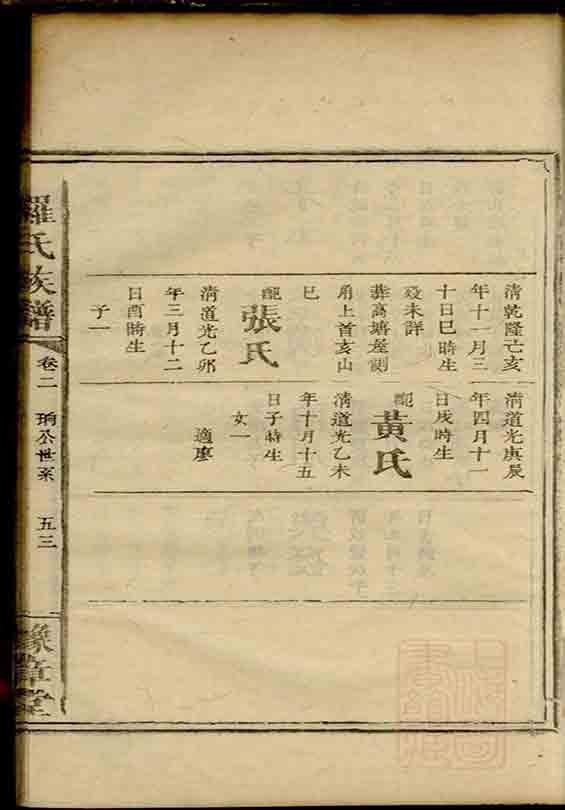 清乾隆己亥
年十一月三
十日巳時生
歿未詳
葬高塘屋側
角上首亥山
巳
配
張氏
清道光乙卯
年三月十二
日酉時生
子一
清道光庚辰
年四月十一
日戌時生
配
黃氏
清道光乙未
年十月十五
日子時生
女一
適廖
羅氏族譜
卷二
珦公世系
五三
豫章堂